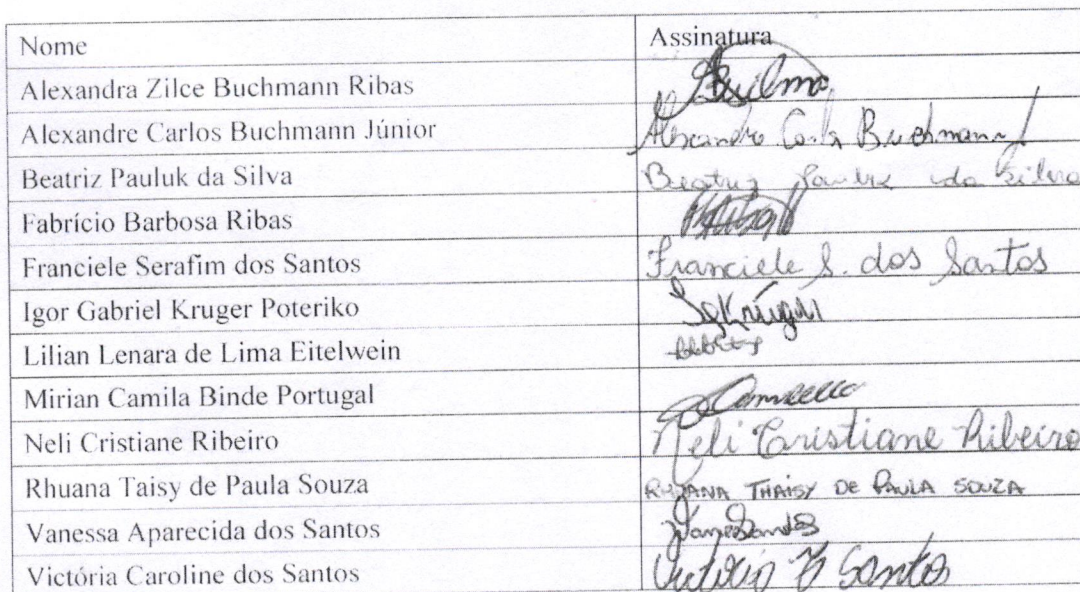 Nome Assinatura
Alexandra Zilce Buchmann Ribas
Alexandre Carlos Buchmann Júnior Alexandre Carlos Buchmann
Beatriz Pauluk da Silva Beatriz Pauluk da Silva
Fabrício Barbosa Ribas
Franciele Serafim dos Santos Franciele S. dos Santos
Igor Gabriel Kruger Poteriko
Lilian Lenara de Lima Eitelwein
Mirian Camila Binde Portugal
Neli Cristiane Ribeiro Neli Cristiane Ribeiro
Rhuana Taisy de Paula Souza RHUANA THAISY DE PAULA SOUZA
Vanessa Aparecida dos Santos
Victória Caroline dos Santos Santos